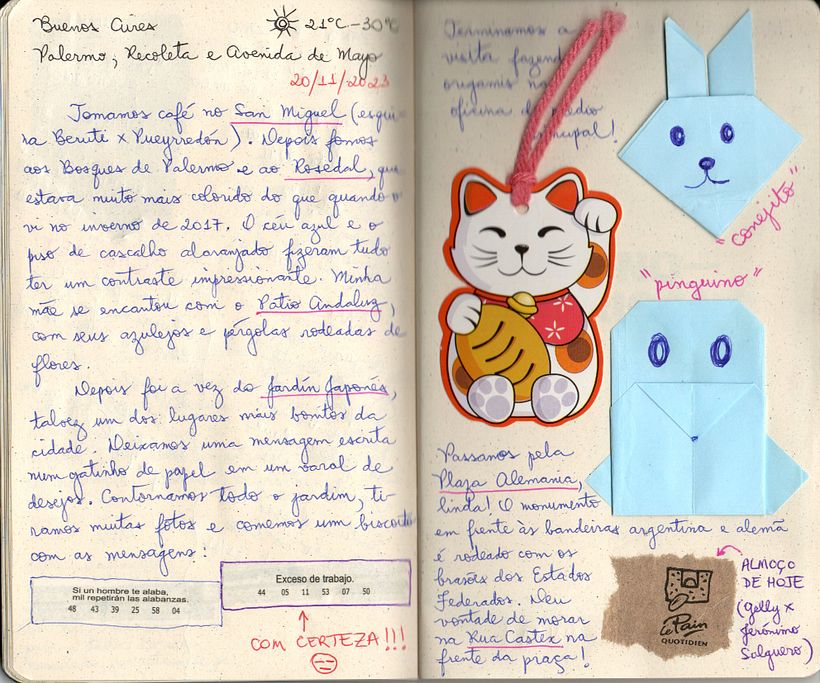 Buenos Aires
21°C-30°C
Palermo, Recoleta e Avenida de Mayo
20/11/2023
Tomamos café no San Miguel (esqui-
na Beruti x Pueyrredón). Depois fomos
aos Bosques de Palermo e ao Rosedal, que
estava muito mais colorido do que quando o
vi no inverno de 2017. O céu azul e o
piso de cascalho alaranjado fizeram tudo
ter um contraste impressionante. Minha
mãe se encantou com o Patio Andaluz,
com seus azulejos e pérgolas rodeadas de
flores.
Depois foi a vez do Jardín Japonés,
talvez um dos lugares mais bonitos da
cidade. Deixamos uma mensagem escrita
num gatinho de papel em um varal de
desejos. Contornamos todo o jardim, ti-
ramos muitas fotos e comemos um biscoito
com as mensagens:
Si un hombre te alaba,
mil repetirán las alabanzas.
48 43 39 25 58 04
Exceso de trabajo.
44 05 11 53 07 50
COM CERTEZA!!!
Terminamos a
visita fazend
origamis na
oficina do prédio
principal!
"conejito"
"pinguino"
Passamos pela
Plaza Alemania,
linda! O monumento
em frente às bandeiras argentina e alemã
é rodeado com os
brasões dos Estados
Federados. Deu
vontade de morar
na Rua Castex na
frente da praça!
Le Pain
QUOTIDIEN
ALMOÇO
DE HOJE
(Gelly x
Jerónimo
Salguero)